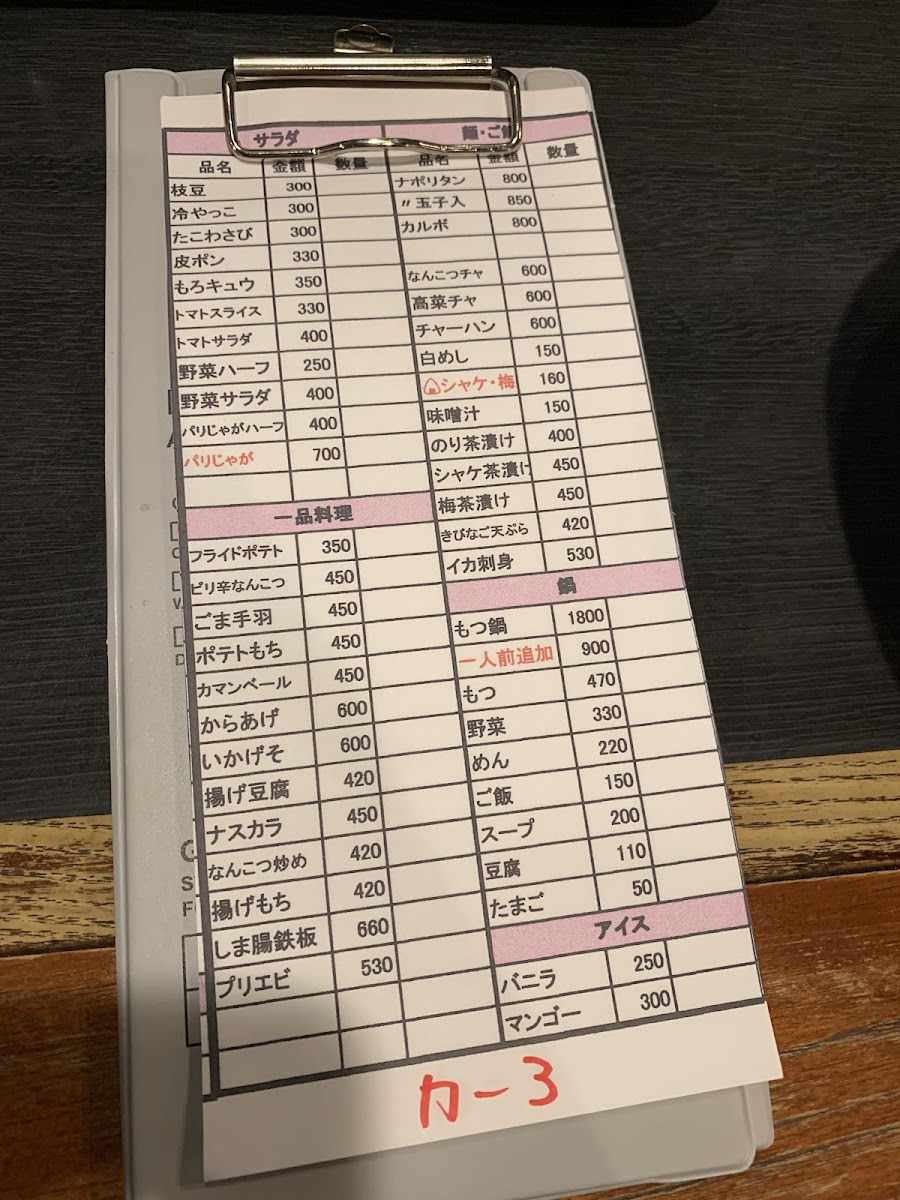 サラダ
品名 金額 数量
枝豆 300
冷やっこ 300
たこわさび 300
皮ポン 330
もろキュウ 350
トマトスライス 330
トマトサラダ 400
野菜ハーフ 250
野菜サラダ 400
パリじゃがハーフ 400
パリじゃが 700
一品料理
フライドポテト 350
ピリ辛なんこつ 450
ごま手羽 450
ポテトもち 450
カマンベール 450
からあげ 600
いかげそ 600
揚げ豆腐 420
ナスカラ 450
なんこつ炒め 420
揚げもち 420
しま腸鉄板 660
プリエビ 530
麺・ご飯
品名 金額 数量
ナポリタン 800
〃玉子入 850
カルボ 800
なんこつチャ 600
高菜チャ 600
チャーハン 600
白めし 150
🍙シャケ・梅 160
味噌汁 150
のり茶漬け 400
シャケ茶漬け 450
梅茶漬け 450
きびなご天ぷら 420
イカ刺身 530
鍋
もつ鍋 1800
一人前追加 900
もつ 470
野菜 330
めん 220
ご飯 150
スープ 200
豆腐 110
たまご 50
アイス
バニラ 250
マンゴー 300
カー3